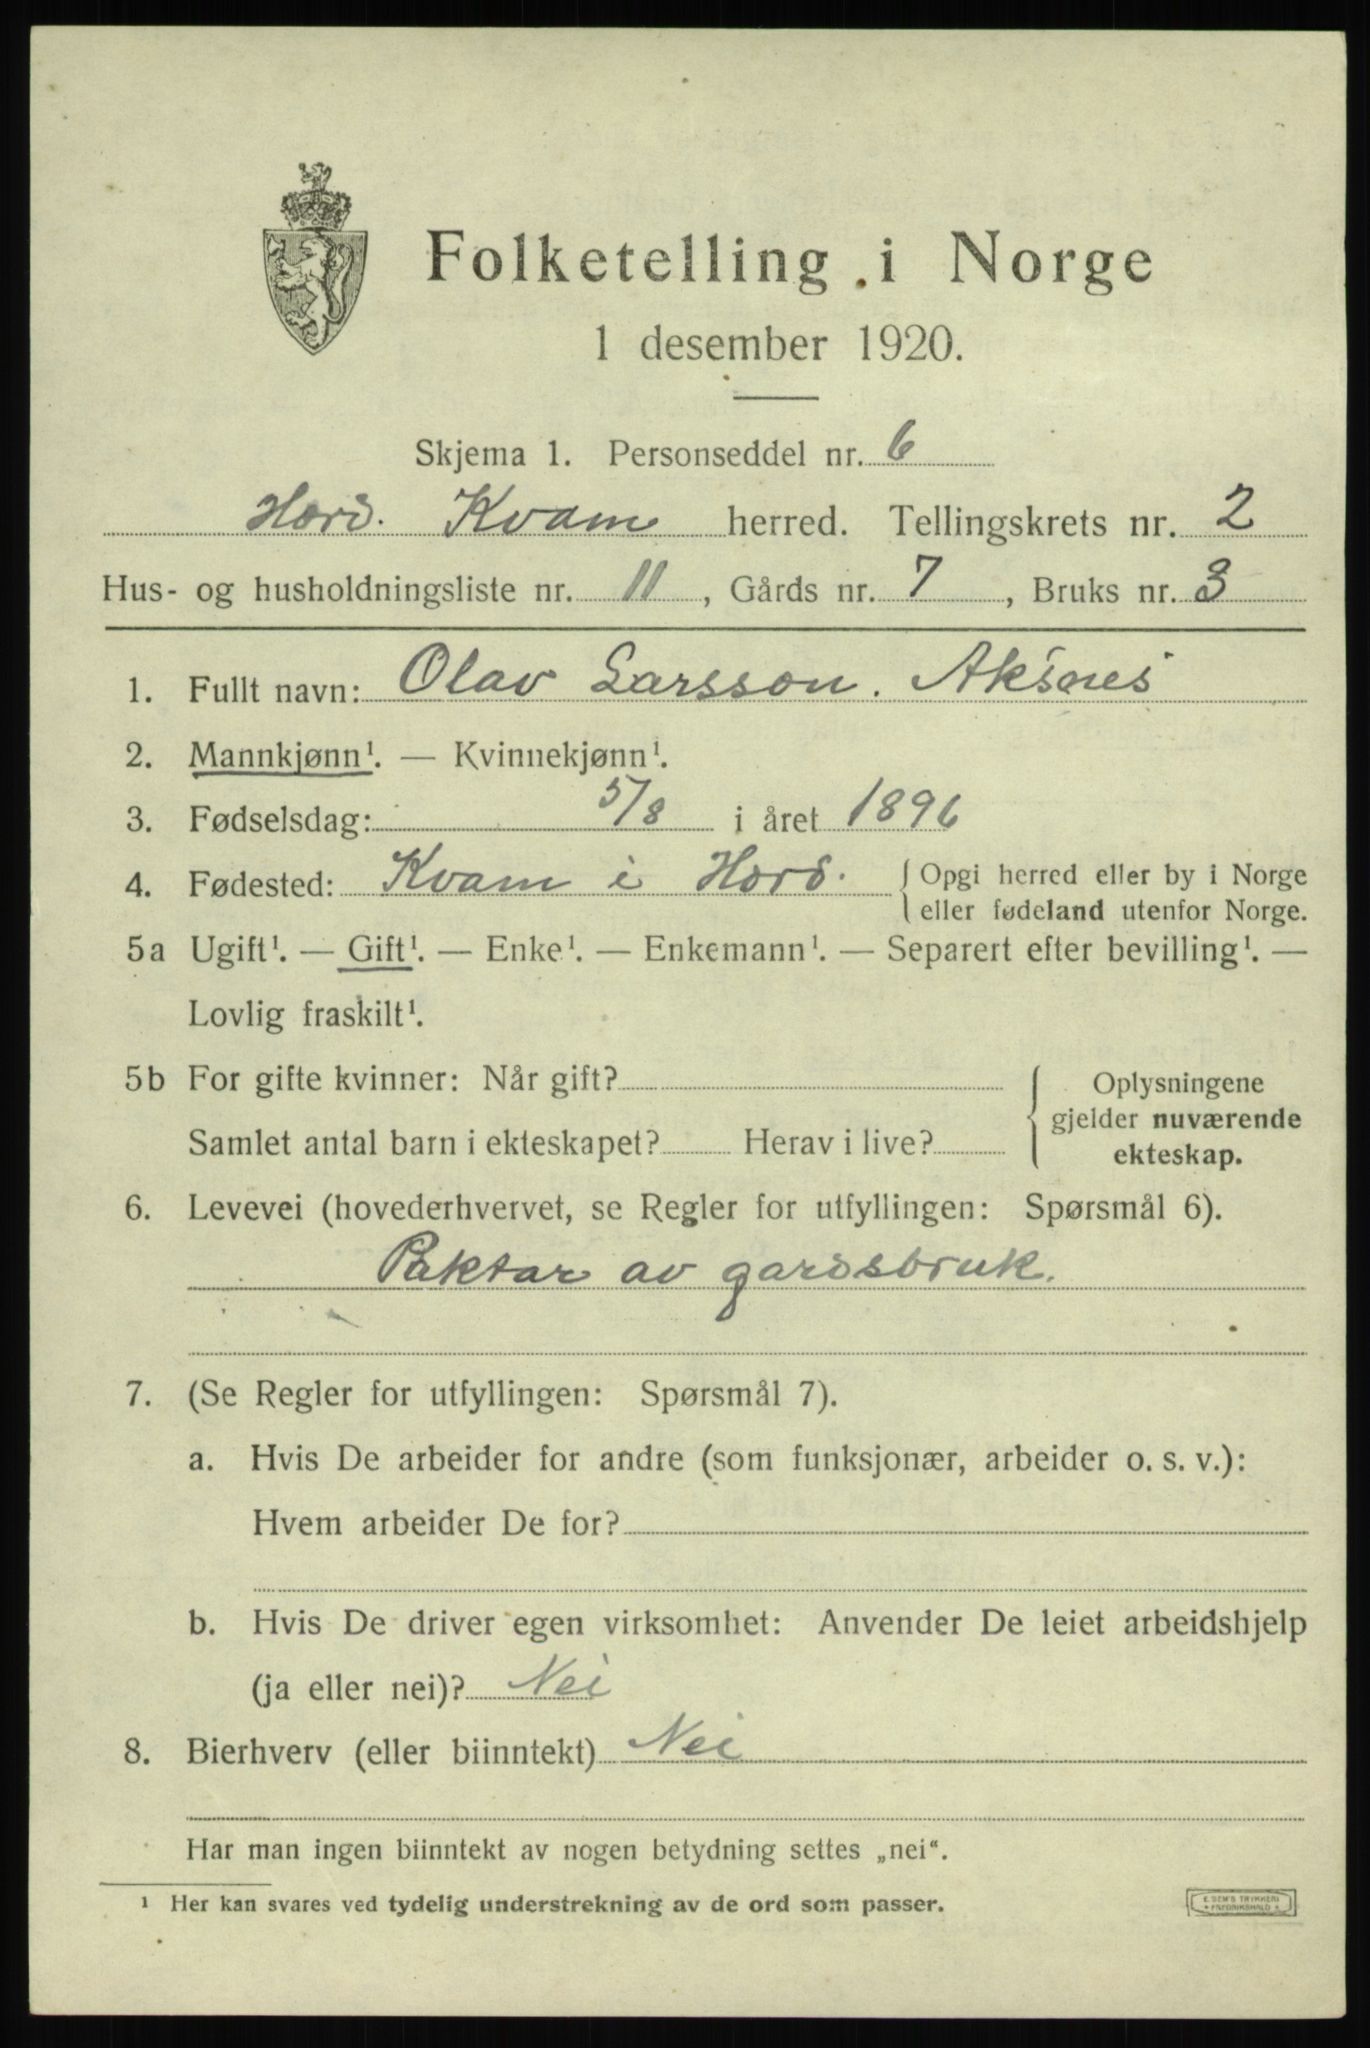 Folketelling i Norge
1 desember 1920.
Skjema 1. Personseddel nr. 6
Hord. Kvam herred. Tellingskrets nr. 2
Hus- og husholdningsliste nr. 11, Gårds nr. 7, Bruks nr. 3
1. Fullt navn: Olav Larsson. Aksnes
2. Mannkjønn¹. — Kvinnekjønn¹.
3. Fødselsdag: 5/8 i året 1896
4. Fødested: Kvam i Hord. { Opgi herred eller by i Norge
eller fødeland utenfor Norge.
5a Ugift¹. — Gift¹. — Enke¹. — Enkemann¹. — Separert efter bevilling¹. —
Lovlig fraskilt¹.
5b For gifte kvinner: Når gift? { Oplysningene
gjelder nuværende
Samlet antal barn i ekteskapet? Herav i live?
ekteskap.
6. Levevei (hovederhvervet, se Regler for utfyllingen: Spørsmål 6).
Paktar av gardsbruk.
7. (Se Regler for utfyllingen: Spørsmål 7).
a. Hvis De arbeider for andre (som funksjonær, arbeider o. s. v.):
Hvem arbeider De for?
b. Hvis De driver egen virksomhet: Anvender De leiet arbeidshjelp
(ja eller nei)? Nei
8. Bierhverv (eller biinntekt) Nei
Har man ingen biinntekt av nogen betydning settes „nei“.
¹ Her kan svares ved tydelig understrekning av de ord som passer.
E. SEM'S TRYKKERI
FREDRIKSHALD